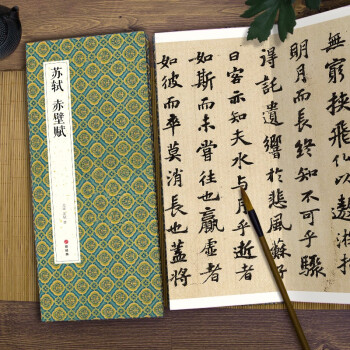 苏轼 赤壁赋
無窮挾飛仙以遨游
明月而長終知不可乎驟
得託遺響於悲風蘇子
曰客亦知夫水与月乎逝者
如斯而未嘗往也贏虛者
如彼而卒莫消長也蓋將